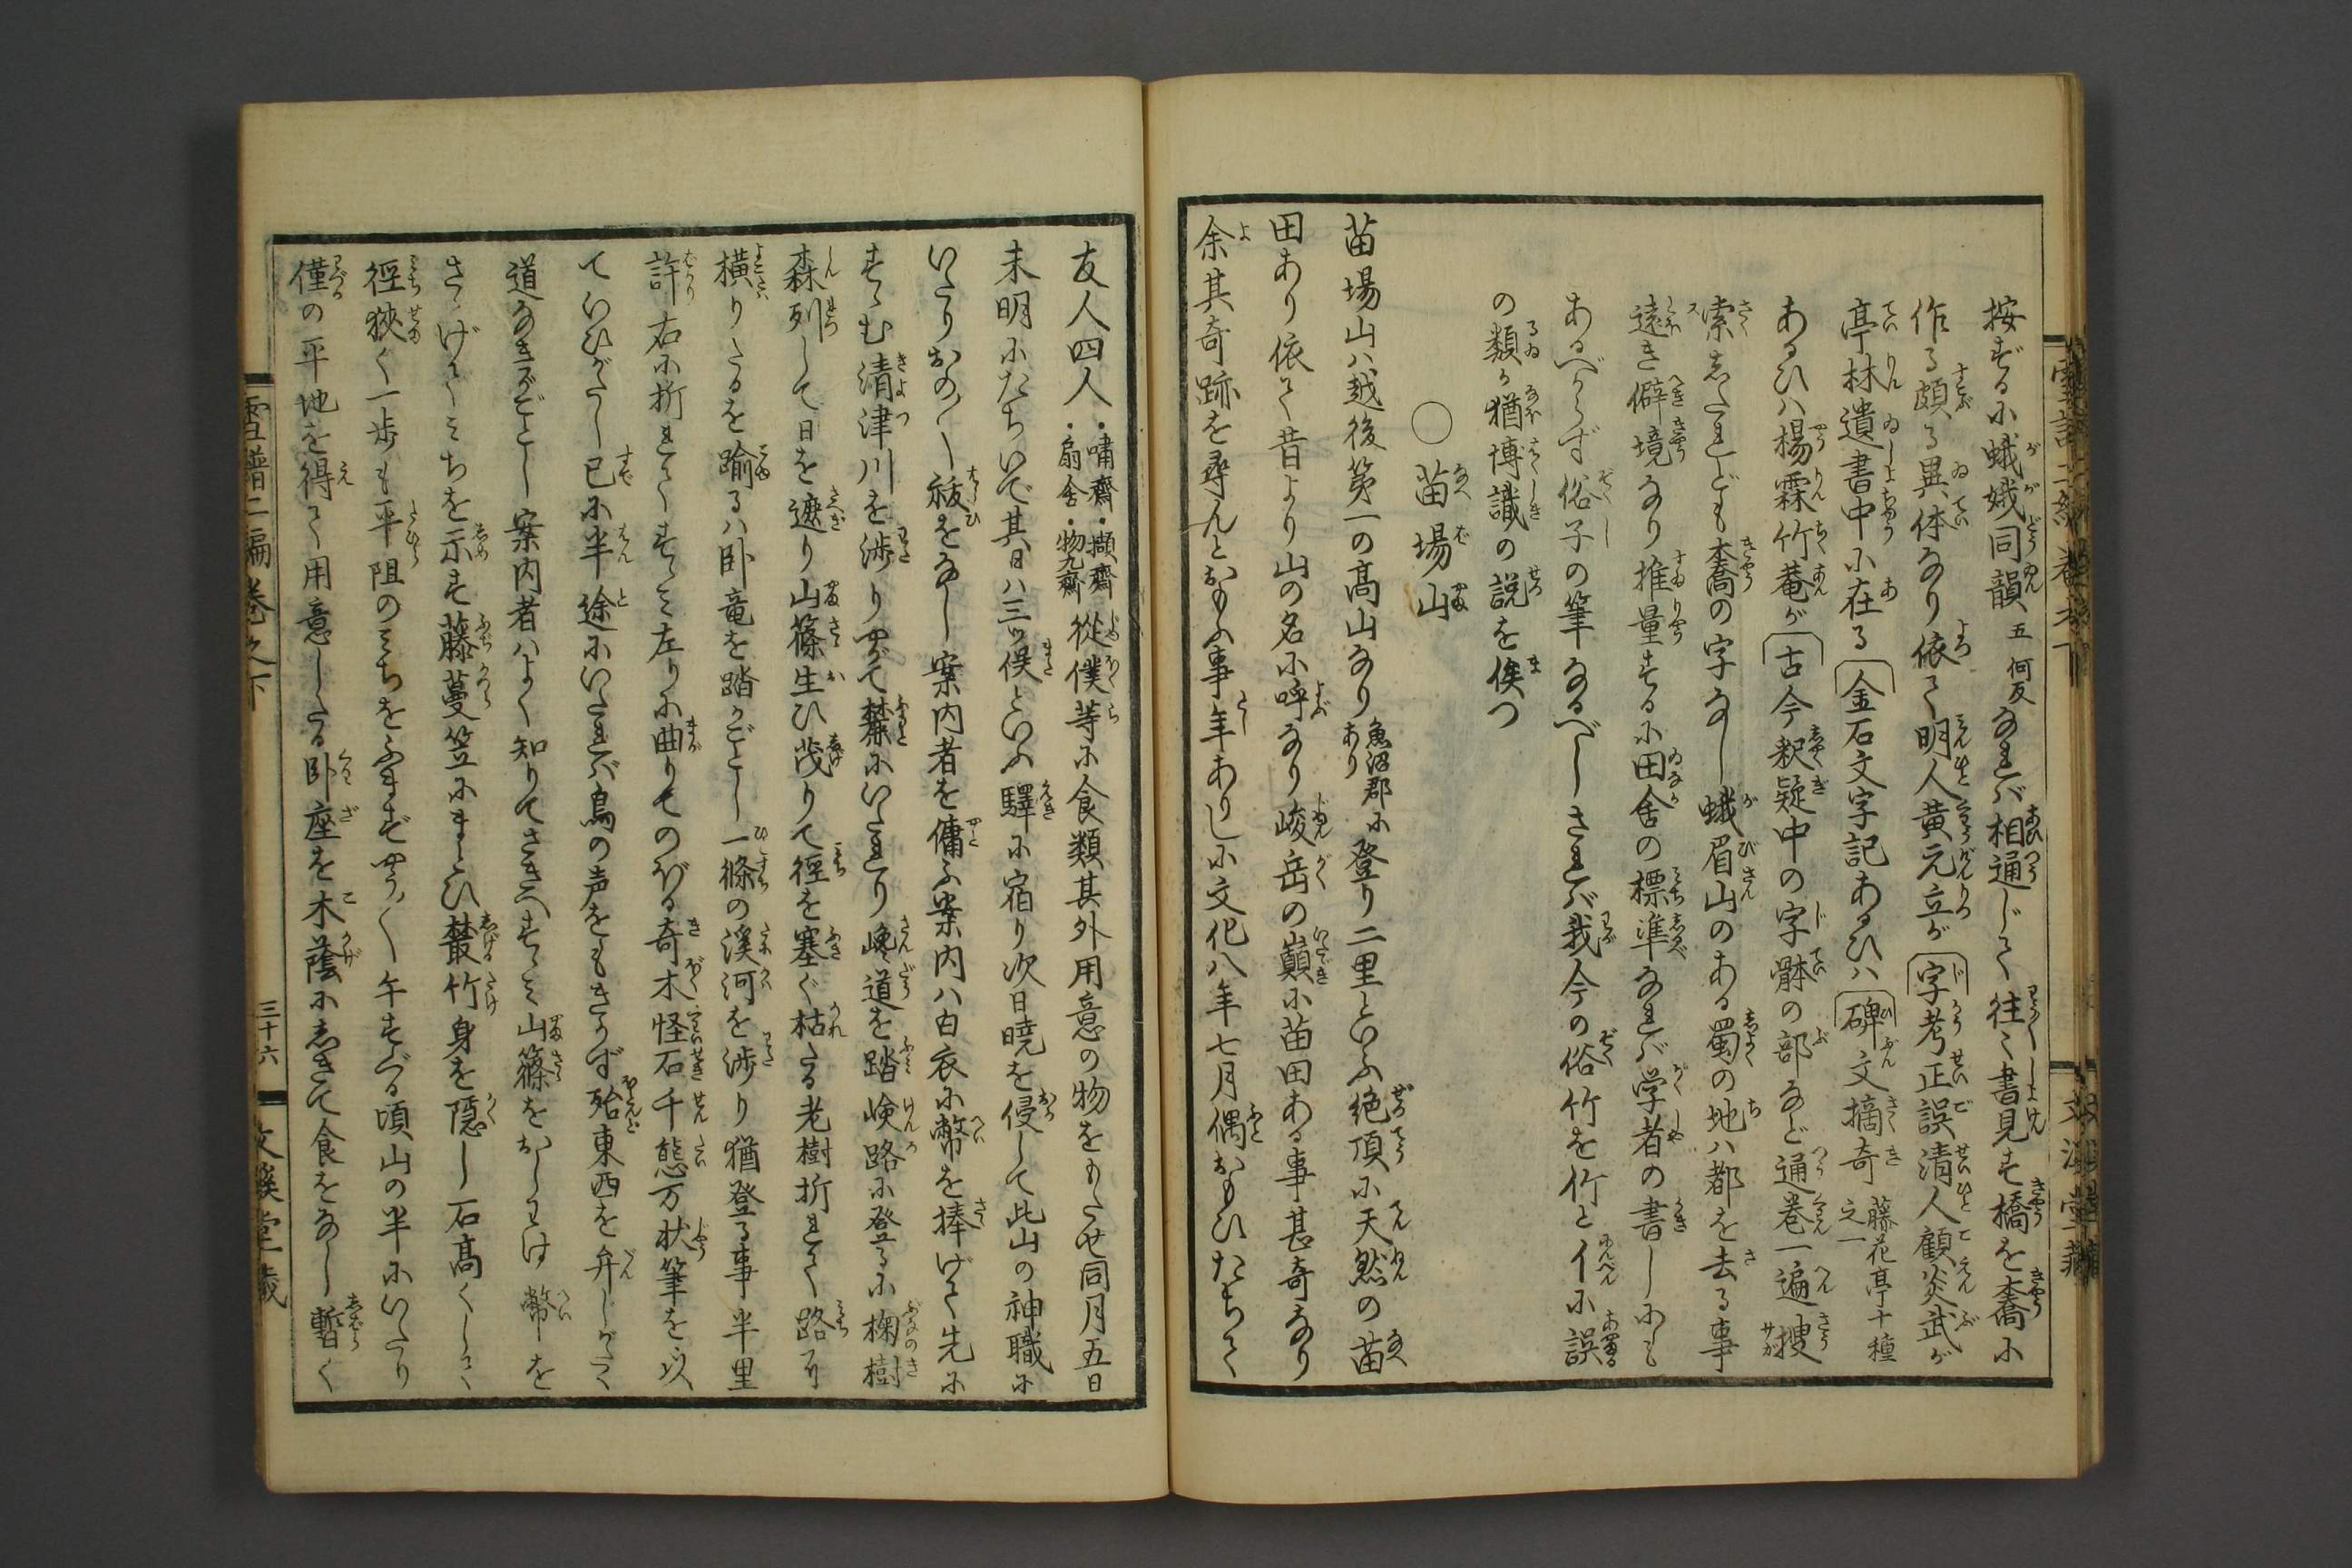 按ずるに蛾娥同韻五何反なれば相通じて往〻書見す橋を喬に
作る頗る異体なり依て明人黄元立が字考正誤清人顧炎武が
亭林遺書中に在る金石文字記あるひは碑文摘奇藤花亭十種之一
あるひは楊霖竹菴が古今釈疑中の字骵の部など通巻一遍捜
索したれども喬の字なし蛾眉山のある蜀の地は都を去る事
遠き僻境なり推量するに田舎の標準なれば学者の書しにも
あるべからず俗子の筆なるべしされば我今の俗竹を竹とイに誤
の類か猶博識の説を俟つ
○苗場山
苗場山は越後第一の高山なり魚沼郡にあり登り二里といふ絶頂に天然の苗
田あり依て昔より山の名に呼なり峻岳の巓に苗田ある事甚奇なり
余其奇跡を尋んとおもふ事年ありしに文化八年七月偶おもひたちて
友人四人・嘯齋・擷齋・扇舎・物九齋従僕等に食類其外用意の物をもたせ同月五日
未明にたちいで其日は三ツ俣といふ驛に宿り次日暁を侵して此山の神職に
いたりおの〱祓をなし案内者を傭ふ案内は白衣に幣を捧げて先に
すゝむ清津川を渉りやがて麓にいたれり巉道を踏嶮路に登るに掬樹
森列して日を遮り山篠生ひ茂りて徑を塞ぐ枯たる老樹折れて路に
横りたるを踰るは臥竜を踏がごとし一條の渓河を渉り猶登る事半里
許右に折れてすゝみ左りに曲りてのぼる奇木怪石千態万状筆を以
ていひがたし已に半途にいたれば鳥の声をもきかず殆東西を弁じがたく
道なきがごとし案内者はよく知りてさきへすゝみ山篠をおしわけ幣を
さゝげてみちを示す藤蔓笠にまとひ叢竹身を隠し石高くして
徑狭く一歩も平阻のみちをふまずやう〱午すぐる頃山の半にいたり
僅の平地を得て用意したる臥座を木蔭にしきて食をなし暫く
雪譜二編巻之下
三十六
文溪堂蔵